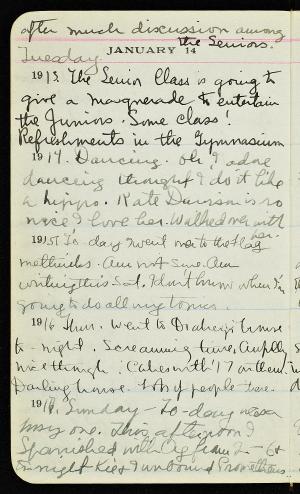 after much discussion among
the Seniors.
JANUARY 14
Tuesday
1913. The Senior Class is going to
give a masquerade to entertain
the Juniors. Some class!
Refreshments in the Gymnasium
1914. Dancing. Oh! I adore
dancing though I do it like
a hippo. Kate is so
nice I love her. Walked over with
her.
1915 To-day I went over to the
. Am not sure. Am
writing this Sat. I don't know when I'm
going to do all my topics.
1916 Thur. Went to house
to-night. Screaming time, Awfully
nice though. Cakes with '17 on them,
Darling house. Lots of people there.
1917. Sunday - To-day never
any one. This afternoon I
Spanished with from 2 - 6
to-night Kit & I unbound Prometheus